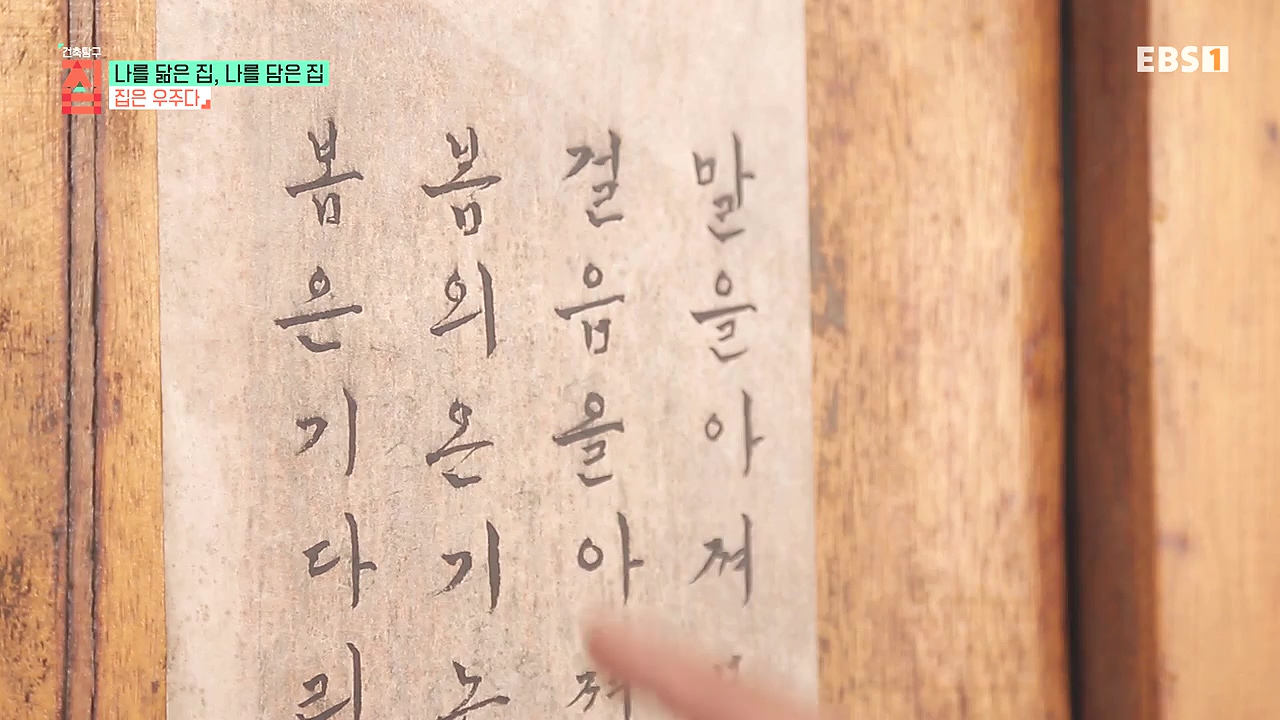 건축탐구
집
나를 닮은 집, 나를 담은 집
집은 우주다
EBS1
말을아껴
걸음을아껴
봄의온기
봄은기다리